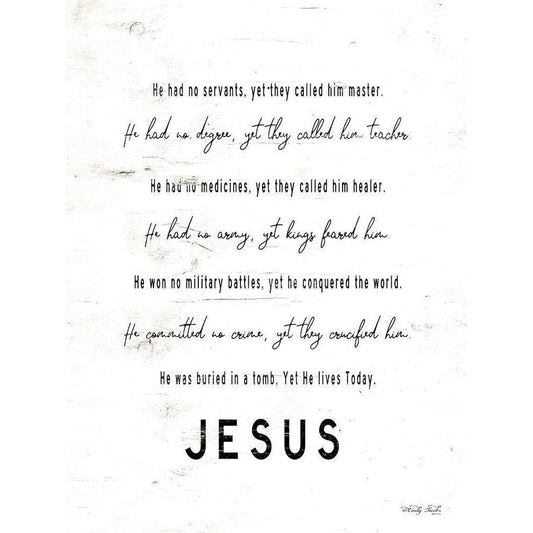 He had no servants, yet they called him master.
He had no degree, yet they called him teacher.
He had no medicines, yet they called him healer.
He had no army, yet kings feared him
He won no military battles, yet he conquered the world.
He committed no crime, yet they crucified him.
He was buried in a tomb, Yet He lives Today.
JESUS